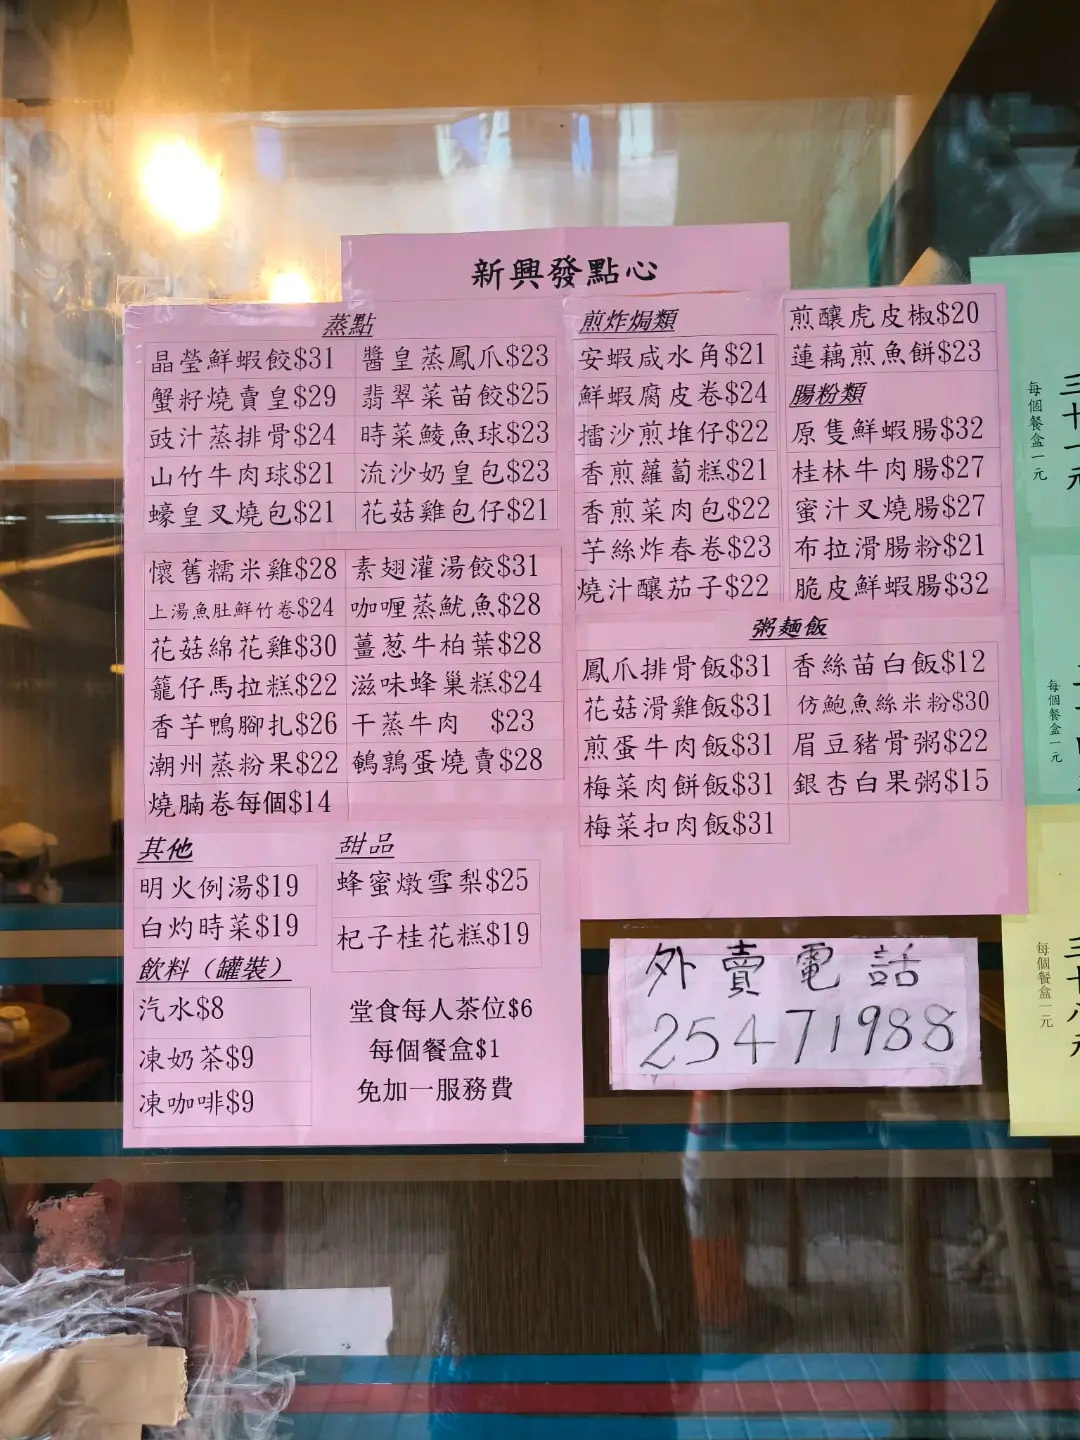 新興發點心
蒸點
晶瑩鮮蝦餃$31 醬皇蒸鳳爪$23
蟹籽燒賣皇$29 翡翠菜苗餃$25
豉汁蒸排骨$24 時菜鯪魚球$23
山竹牛肉球$21 流沙奶皇包$23
蠔皇叉燒包$21 花菇雞包仔$21
懷舊糯米雞$28 素翅灌湯餃$31
上湯魚肚鮮竹卷$24 咖喱蒸魷魚$28
花菇綿花雞$30 薑葱牛柏葉$28
籠仔馬拉糕$22 滋味蜂巢糕$24
香芋鴨腳扎$26 干蒸牛肉 $23
潮州蒸粉果$22 鵪鶉蛋燒賣$28
燒腩卷每個$14
其他
明火例湯$19
白灼時菜$19
飲料（罐裝）
汽水$8
凍奶茶$9
凍咖啡$9
甜品
蜂蜜燉雪梨$25
杞子桂花糕$19
堂食每人茶位$6
每個餐盒$1
免加一服務費
煎炸焗類
安蝦咸水角$21
鮮蝦腐皮卷$24
擂沙煎堆仔$22
香煎蘿蔔糕$21
香煎菜肉包$22
芋絲炸春卷$23
燒汁釀茄子$22
煎釀虎皮椒$20
蓮藕煎魚餅$23
腸粉類
原隻鮮蝦腸$32
桂林牛肉腸$27
蜜汁叉燒腸$27
布拉滑腸粉$21
脆皮鮮蝦腸$32
粥麵飯
鳳爪排骨飯$31 香絲苗白飯$12
花菇滑雞飯$31 仿鮑魚絲米粉$30
煎蛋牛肉飯$31 眉豆豬骨粥$22
梅菜肉餅飯$31 銀杏白果粥$15
梅菜扣肉飯$31
外賣電話
25471988
三十一元
每個餐盒一元
每個餐盒一元
三十八元
每個餐盒一元